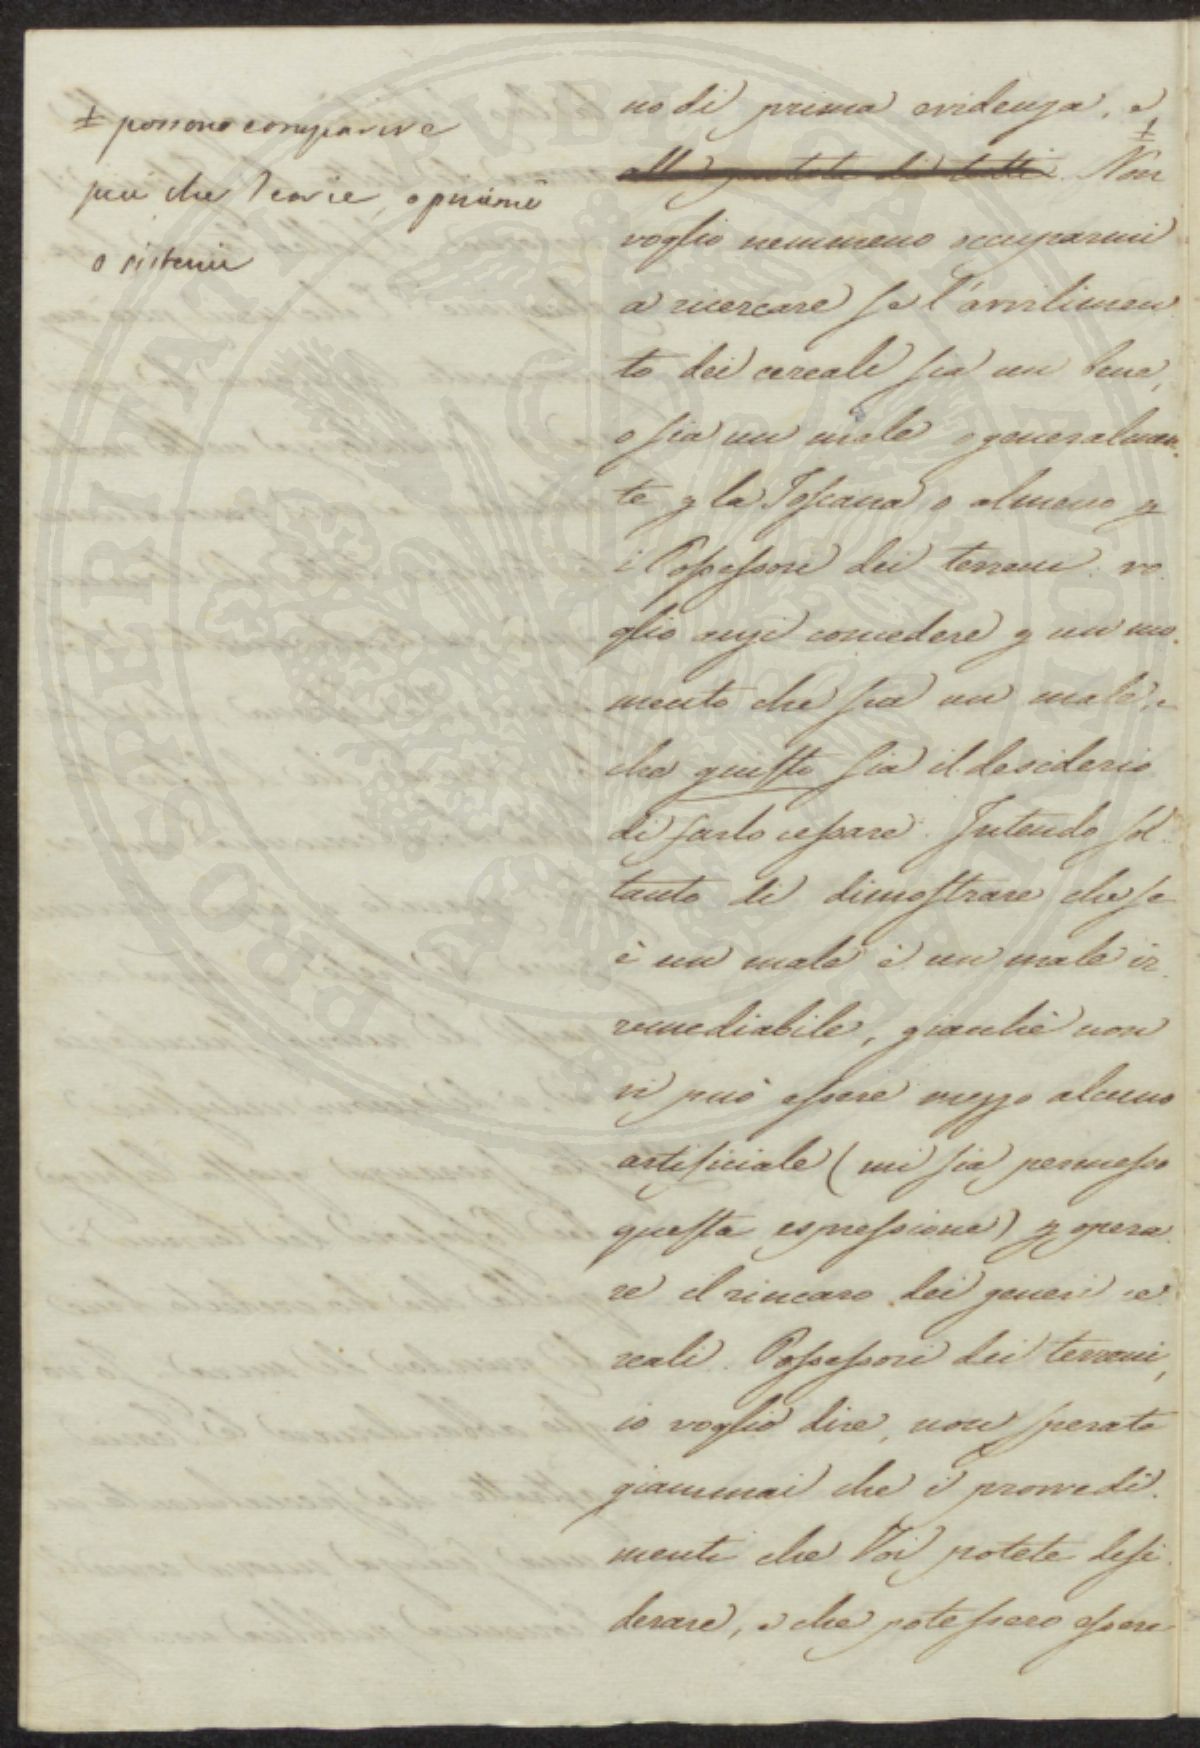 ± possono comparire
più che Teorie, opinioni
o sistemi
no di prima evidenza, e
±
Non
voglio nemmeno occuparmi
a ricercare se l'avvilimen
to dei cereali sia un bene,
o sia un male o generalmen
te p la Toscana o almeno p
i Possessori dei terreni. vo
glio anzi concedere p un mo
mento che sia un male, e
che giusto sia il desiderio
di farlo cessare. Intendo sol
tanto di dimostrare che se
è un male è un male ir
remediabile, gianchè non
vi può essere mezzo alcuno
artificiale (mi sia permesso
questa espressione) p opera
re il rincaro dei generi ce
reali. Possessori dei terreni,
io voglio dire, non sperate
giammai che i provvedi
menti che Voi potete desi
derare, e che potessero essere
PROSPERITATI PUBLICAE